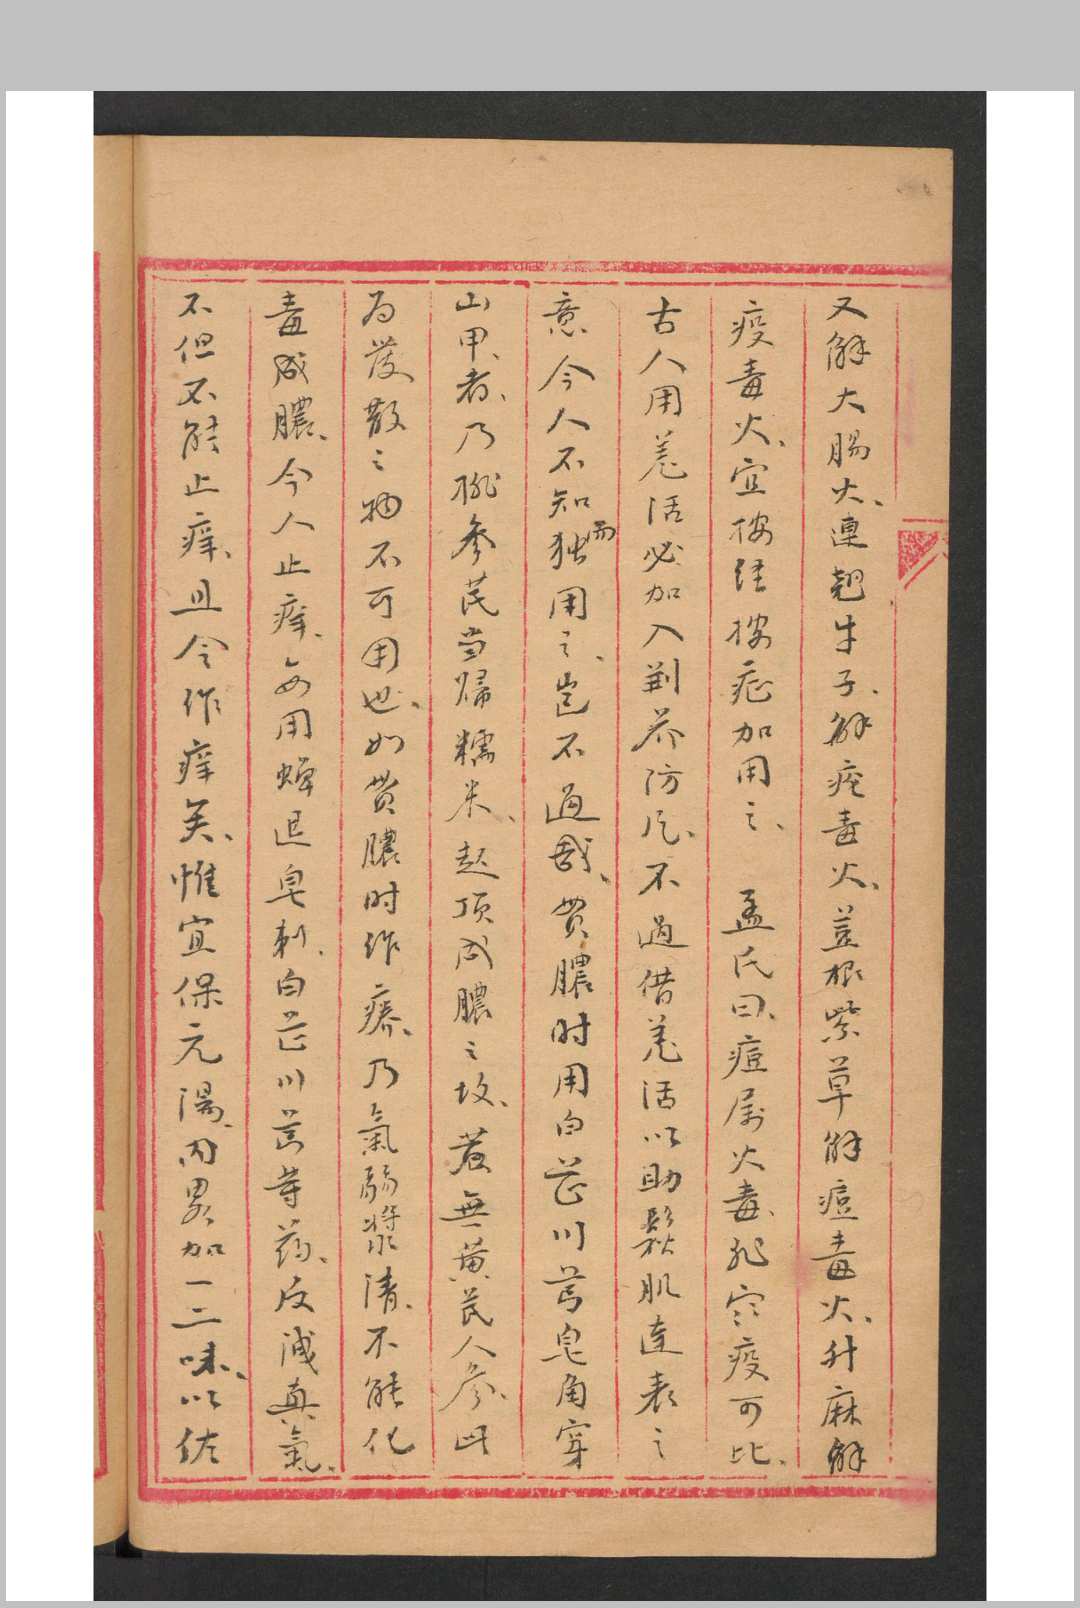 又解大腸火、連翹牛子、解痘毒火、荳根紫草解痘毒火、升麻解
疫毒火、宜按經按症加用之、 孟氏曰、痘屬火毒、非他疫可比、
古人用羌活必加入荊芥防风、不過借羌活以助鬆肌達表之
意、今人不知而独用之、豈不過哉、貫膿时用白芷川芎皂角穿
山甲、者、乃排參芪当歸糯米、起頂成膿之故、蓋無黄芪人参、此
为發散之物不可用也、如貫膿时作癢、乃氣弱漿清、不能化
毒成膿、今人止癢、每用蟬退皂刺、白芷川芎等葯、反減真氣、
不但不能止癢、且令作癢矣、惟宜保元湯、内畧加一二味、以佐